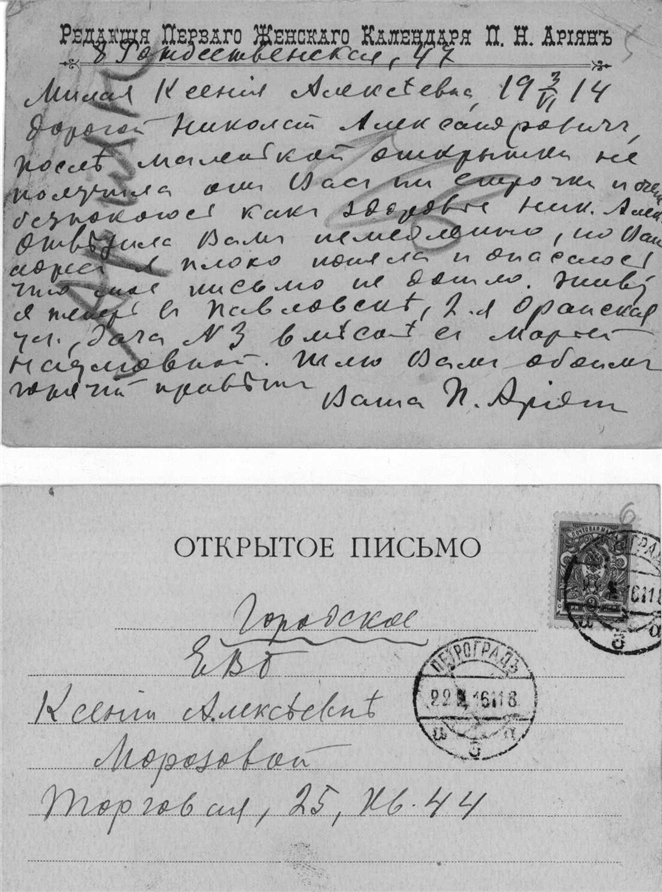 Редакція Перваго Женскаго Календаря П. Н. Аріянъ
8 Рождественская, 47
Милая Ксенія Алексѣевна, 19 3/VI 14
дорогой Николай Александровичъ,
послѣ маленькой открытки не
получила отъ Васъ ни строчки и очень
безпокоюсь какъ здоровье Ник. Алек.
Отвѣтила Вамъ немедленно, но Вашъ
адресъ я плохо поняла и опасаюсь
что мое письмо не дошло. Живу
я теперь въ Павловскѣ, 2-я
ул., дача N 3 вмѣстѣ съ
Наумовной. Шлю Вамъ обоимъ
горячій привѣтъ
Ваша П. Аріян
ОТКРЫТОЕ ПИСЬМО
6
Городское
ЕВБ
Ксеніи Алексѣевнѣ
Морозовой
Торговая, 25, кв. 44
ПЕТРОГРАДЪ
22 16 11 8